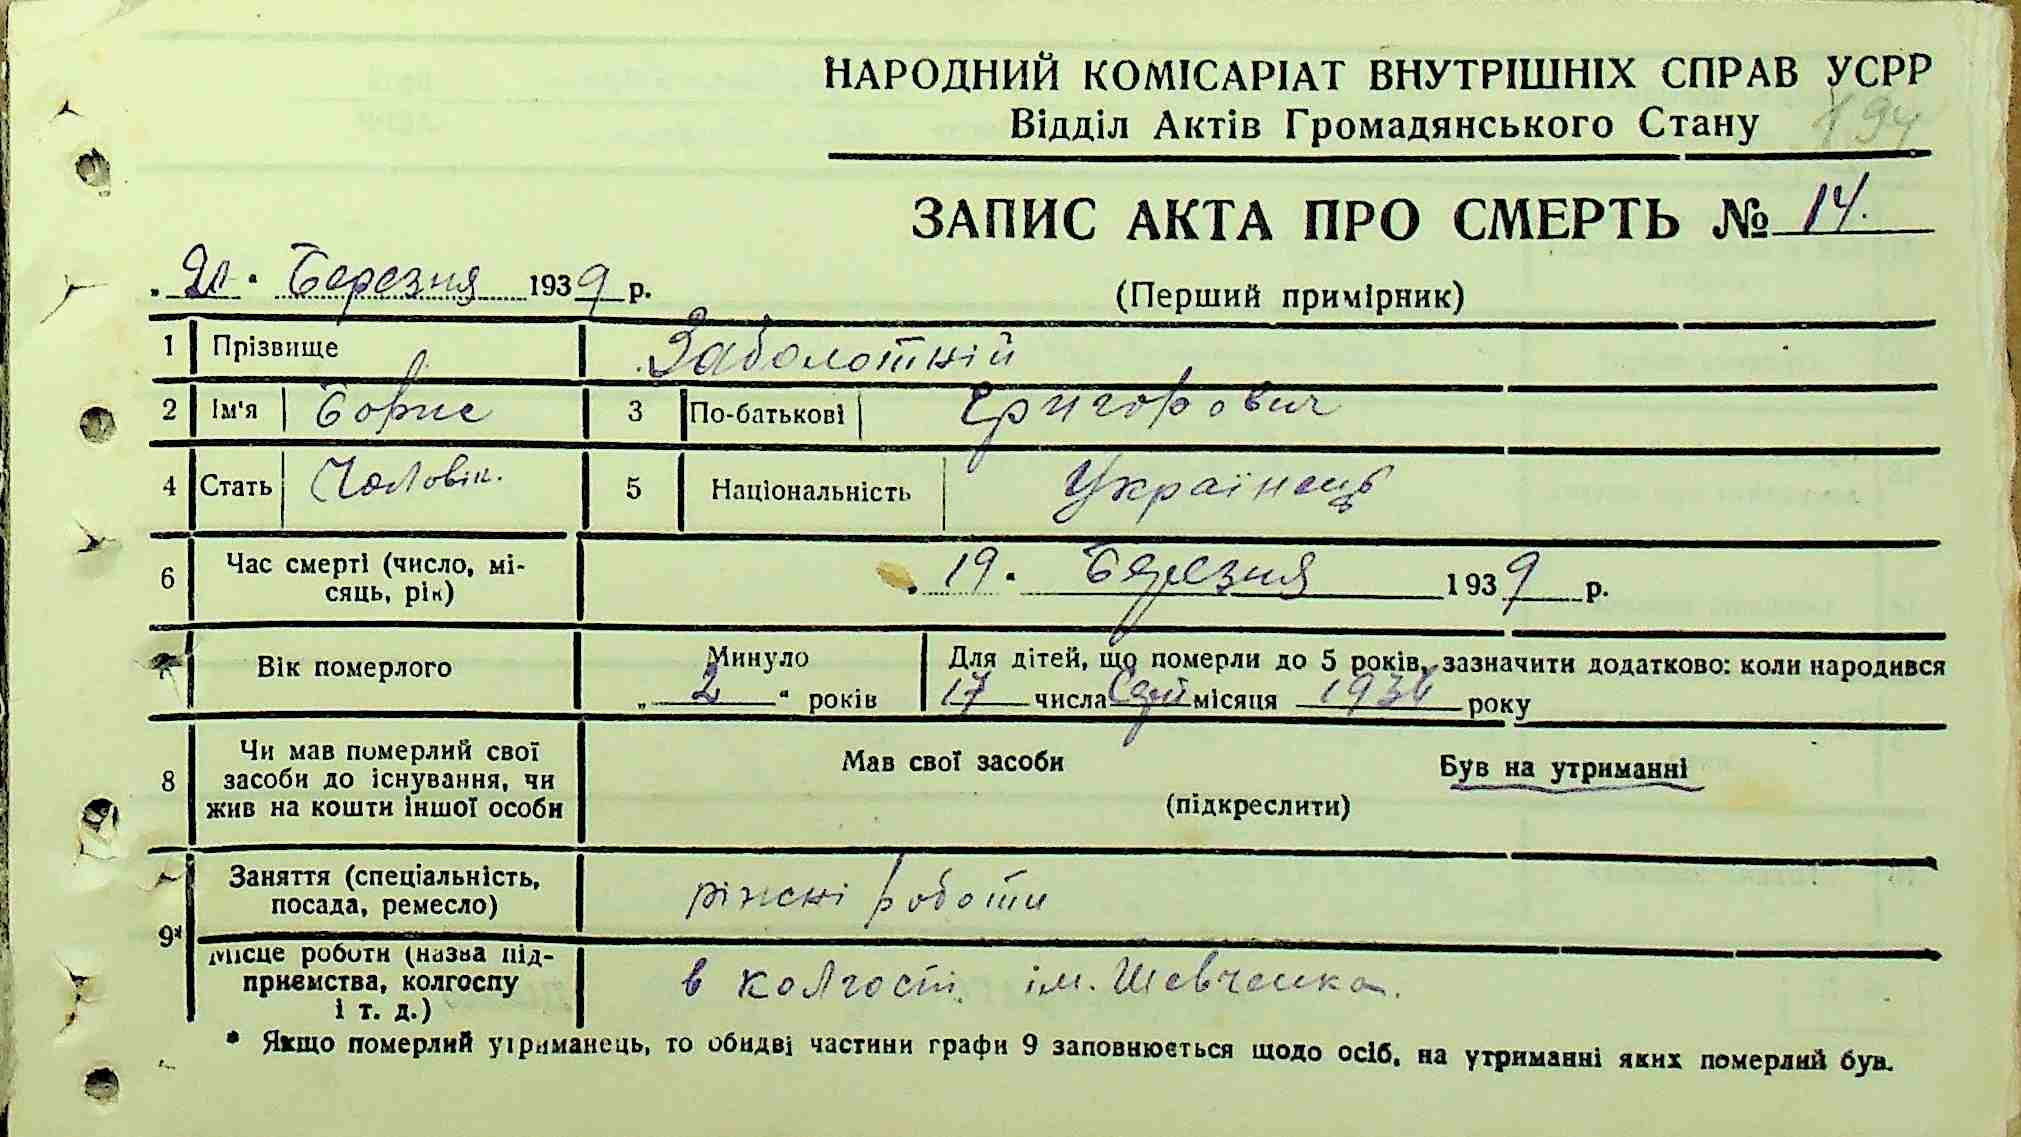 НАРОДНИЙ КОМІСАРІАТ ВНУТРІШНІХ СПРАВ УСРР
Відділ Актів Громадянського Стану
194
ЗАПИС АКТА ПРО СМЕРТЬ № 14.
„ " Березня 1939 р.
(Перший примірник)
1 Прізвище Заболотній
2 Ім'я Борис 3 По-батькові Григорович
4 Стать Чоловік. 5 Національність Українець
6 Час смерті (число, мі-
сяць, рік) „19" Березня 1939 р.
Вік померлого Минуло „2" років
Для дітей, що померли до 5 років, зазначити додатково: коли народився
17 числа місяця 1936 року
8 Чи мав померлий свої
засоби до існування, чи
жив на кошти іншої особи
Мав свої засоби Був на утриманні
(підкреслити)
9* Заняття (спеціальність,
посада, ремесло) ріжні роботи
Місце роботи (назва під-
приємства, колгоспу
і т. д.) в колгосп. ім. Шевченка.
* Якщо померлий утриманець, то обидві частини графи 9 заповнюється щодо осіб, на утриманні яких померлий був.